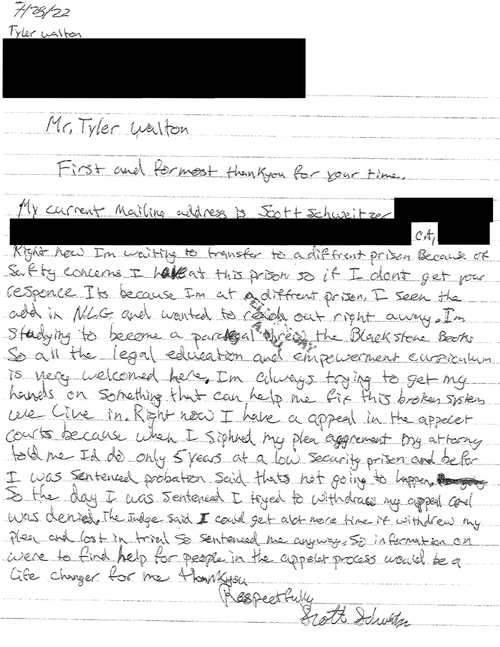 7/28/22
Tyler Walton
Mr. Tyler Walton
First and formost thankyou for your time.
My current Mailing address is Scott Schweitzer
CA,
Right now Im waiting to transfer to a diffrent prison Because of
Safty concerns I have at this prison so if I dont get your
responce Its because Im at a diffrent prison. I seen the
add in NLG and wanted to reach out right away. Im
Studying to become a paralegal threw the Blackstone Books
So all the legal education and empowerment curriculum
is very welcomed here. Im always trying to get my
hands on Something that can help me fix this broken system
we live in. Right now I have a appeal in the appelet
courts because when I Siphned my plea aggrement my attorny
told me Id do only 5 years at a low security prison and befor
I was sentenced probation said thats not going to happen.
So the day I was Sentenced I tryed to withdraw my appeal and
was denied. The Judge said I could get alot more time if withdrew my
plea and lost in trial So sentenced me anyway. So information on
were to find help for people in the appelet process would be a
life changer for me thankyou
Respectfully
Scott